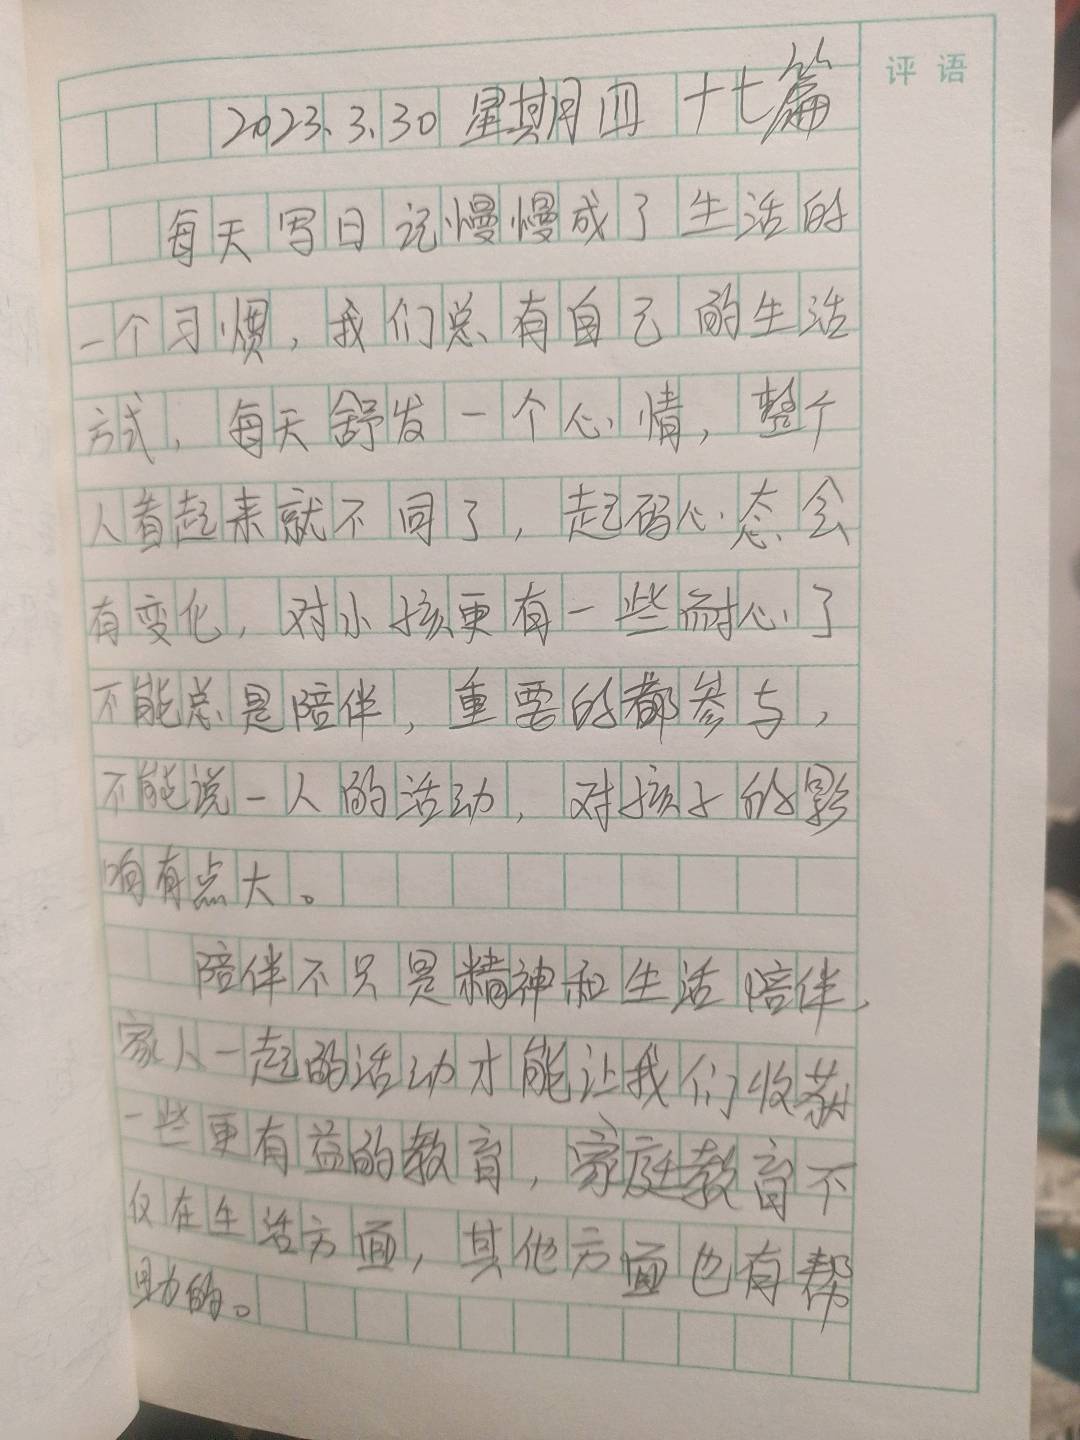 评语
2023.3.30 星期四 十七篇
每天写日记慢慢成了生活的
一个习惯，我们总有自己的生活
方式，每天舒发一个心情，整个
人看起来就不同了，起码心态会
有变化，对小孩更有一些耐心了
不能总是陪伴，重要的都参与，
不能说一人的活动，对孩子的影
响有点大。
陪伴不只是精神和生活陪伴，
家人一起的活动才能让我们收获
一些更有益的教育，家庭教育不
仅在生活方面，其他方面也有帮
助的。